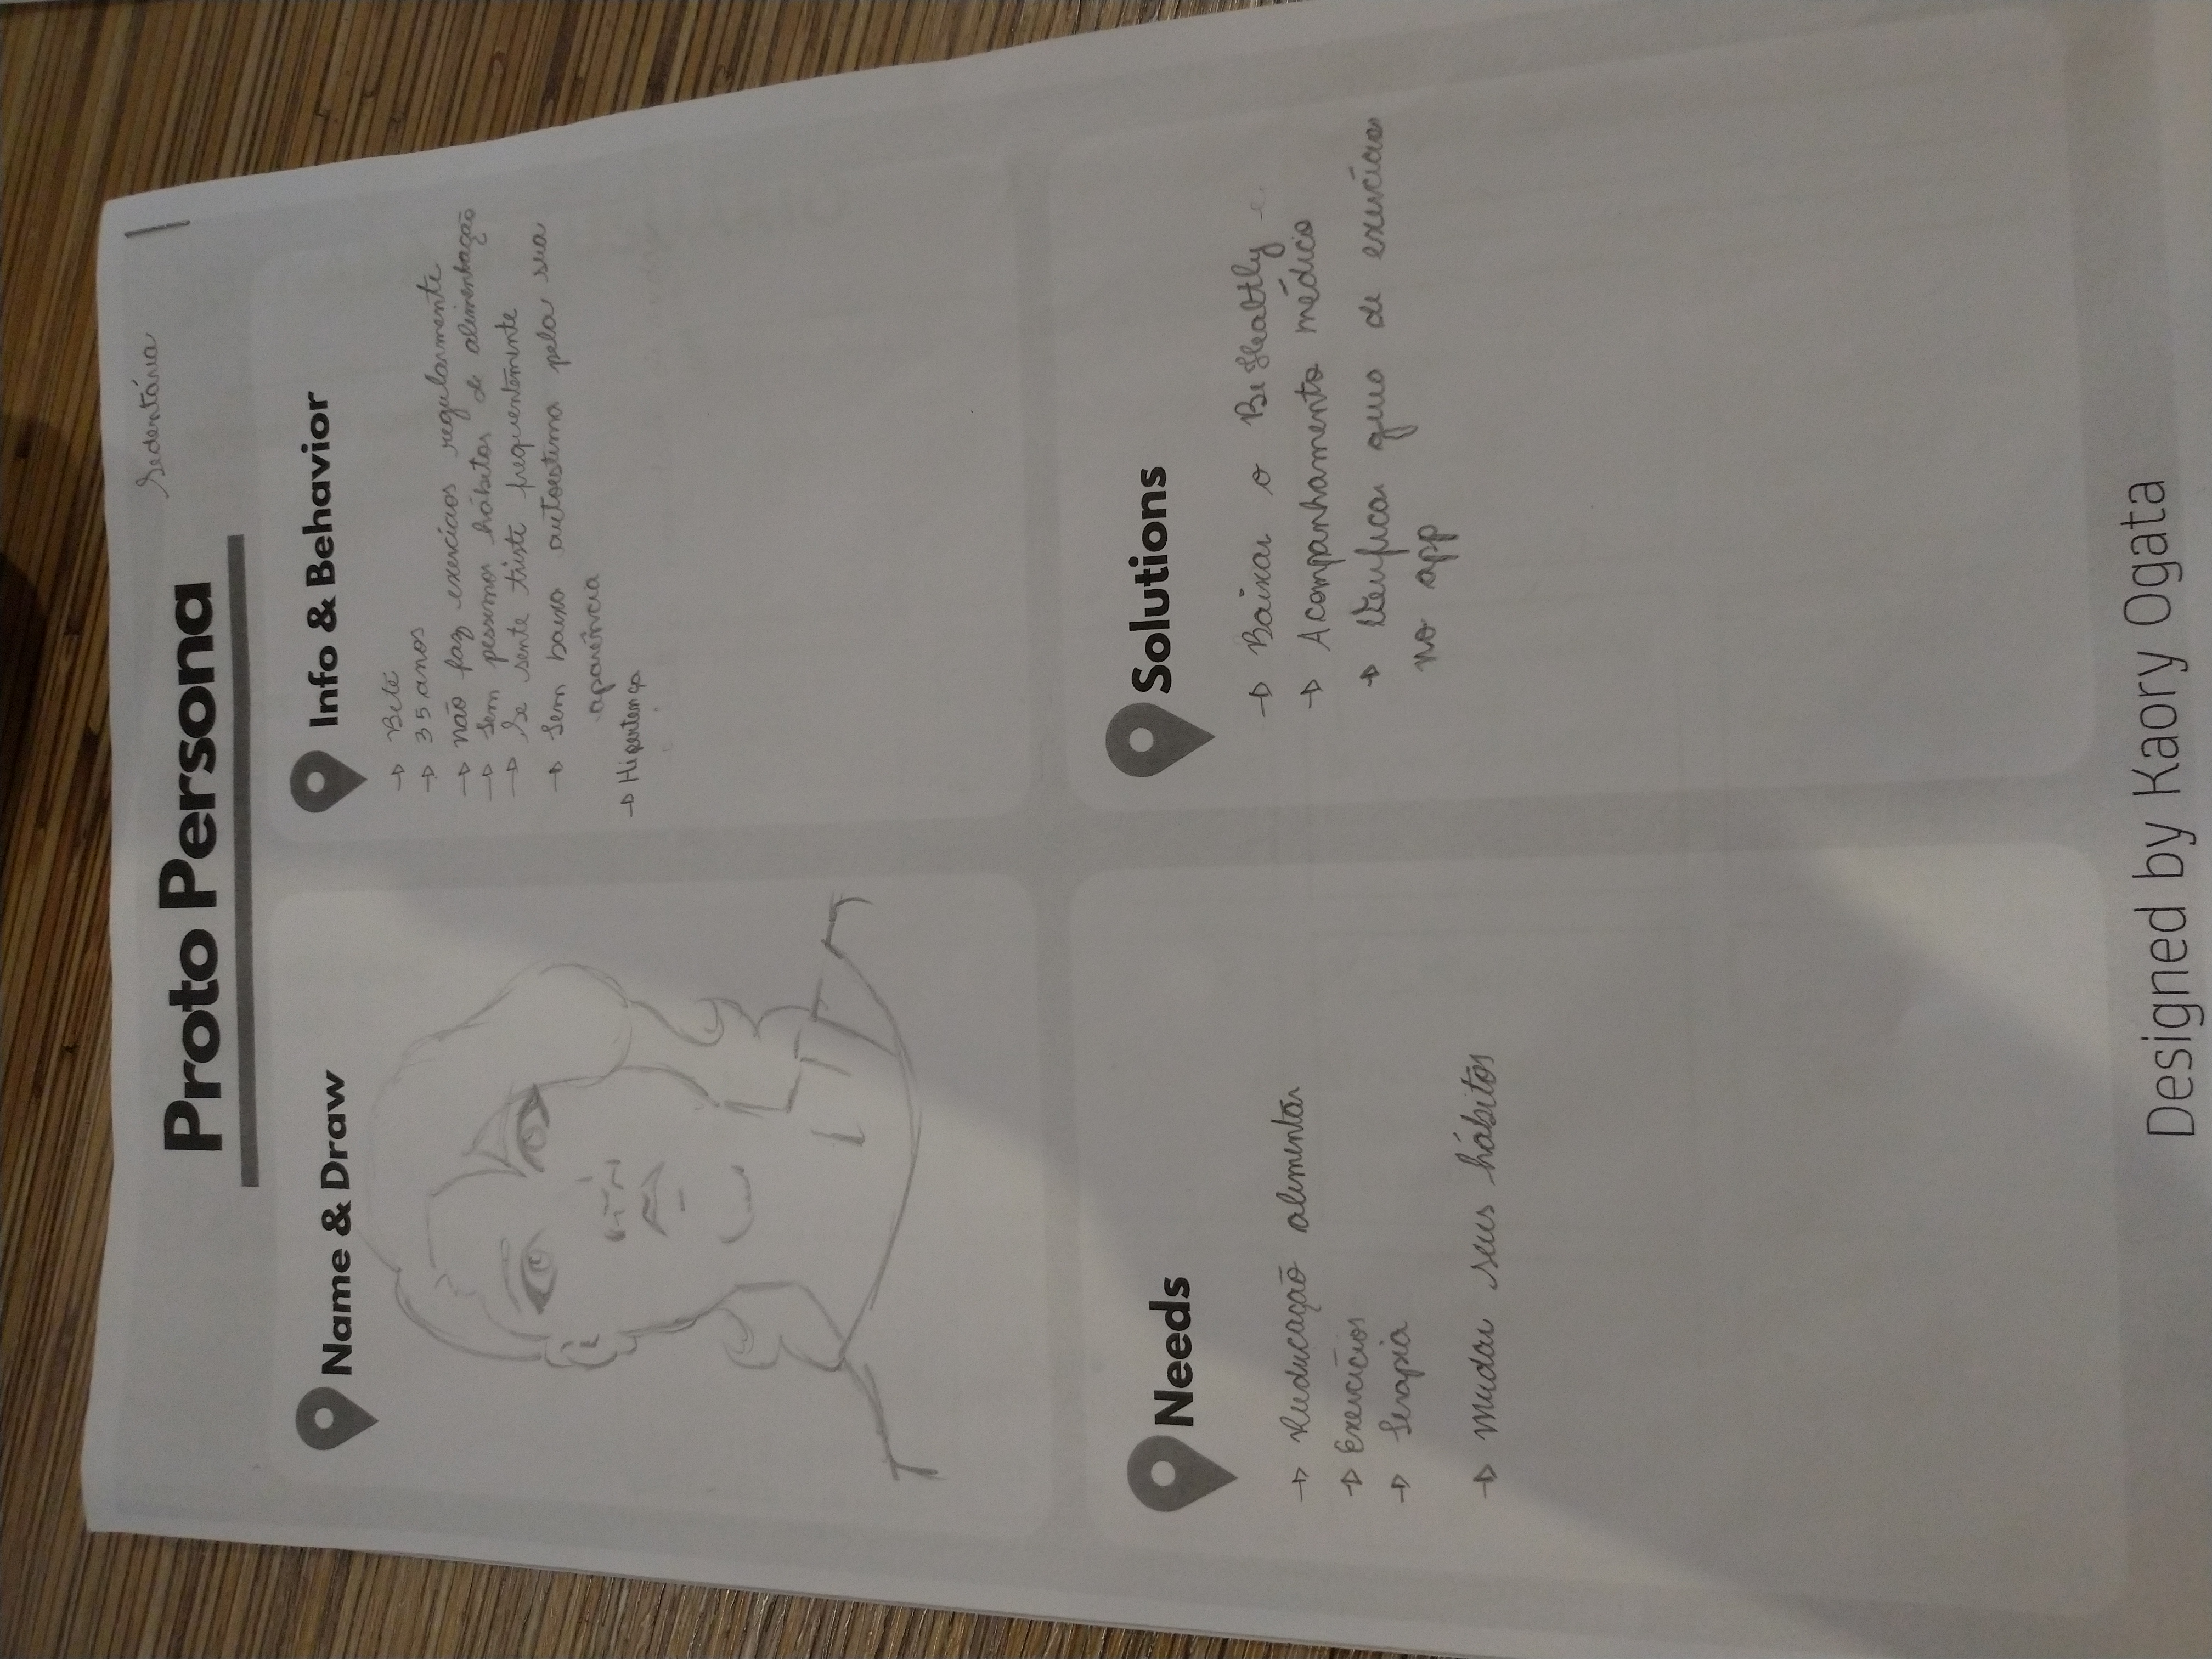 Sedentária
Proto Persona
Name & Draw
Info & Behavior
→ Bete
→ 35 anos
→ não faz exercícios regularmente
→ Tem pessimos hábitos de alimentação
→ Se sente triste frequentemente
→ Tem baixa autoestima pela sua
aparência
→ Hipertença
Needs
→ Reeducação alimentar
→ Exercícios
→ Terapia
→ mudar seus hábitos
Solutions
→ Baixar o BeHealtly e
→ Acompanhamento médico
→ Verificar guia de exercícios
no app
Designed by Kaory Ogata